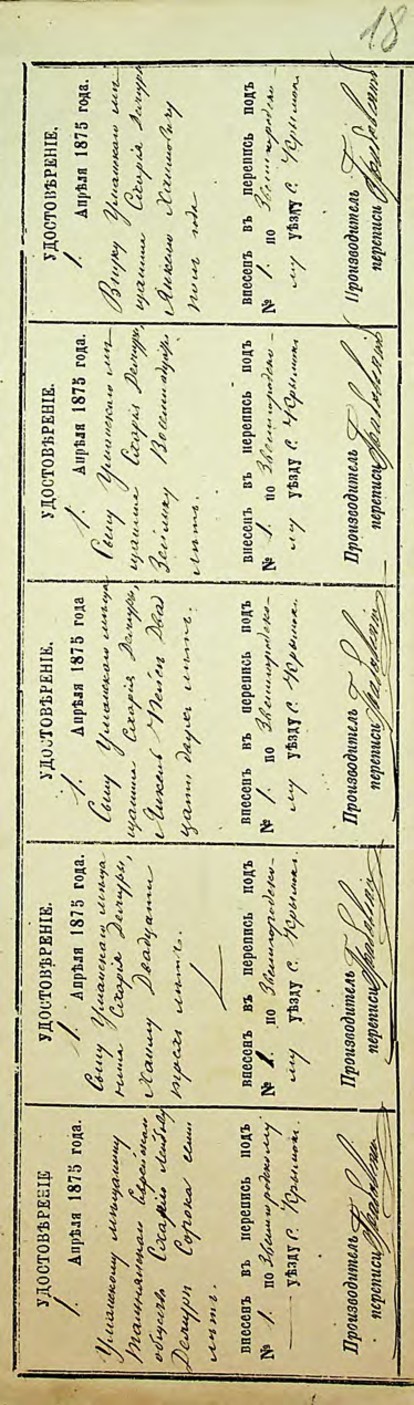 18
УДОСТОВѢРЕНІЕ
1. Апрѣля 1875 года.
Уманскому мѣщанину
общества Сахарію
Демуры Сорока семи
лѣтъ.
внесенъ въ перепись подъ
№ 1. по Звенигородскому
уѣзду с. Крымки.
Производитель
переписи
УДОСТОВѢРЕНІЕ.
1. Апрѣля 1875 года.
Сыну Уманскаго мѣща
нина Сахарія Демуры,
Хаиму Двадцати
трехъ лѣтъ.
внесенъ въ перепись подъ
№ 1. по Звенигородско-
му уѣзду с. Крымки.
Производитель
переписи
УДОСТОВѢРЕНІЕ.
1. Апрѣля 1875 года
Сыну Уманскаго мѣща
нина Сахарія Демуры,
Янкель Два
цати двухъ лѣтъ.
внесенъ въ перепись подъ
№ 1. по Звенигородско-
му уѣзду с. Крымки.
Производитель
переписи
УДОСТОВѢРЕНІЕ.
1. Апрѣля 1875 года.
Сыну Уманскаго мѣ
щанина Сахарія Демуры,
Зейлику Восемнадцати
лѣтъ.
внесенъ въ перепись подъ
№ 1. по Звенигородско-
му уѣзду с. Крымки.
Производитель
переписи
УДОСТОВѢРЕНІЕ.
1. Апрѣля 1875 года.
Внуку Уманскаго мѣ
щанина Сахарія Демуры
Янкелю Хаимовичу
года
внесенъ въ перепись подъ
№ 1. по Звенигородско-
му уѣзду с. Крымки.
Производитель
переписи